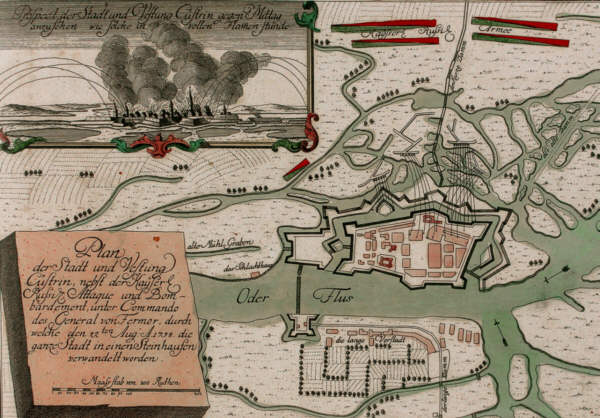 Prospect der Stadt und Vestung Cüstrin gegen Mittag
anzusehen wie solche in vollen Flamen stunde
Kayserl. Rußis. Armee
alter Mühl Graben
das Schlachthaus
Oder Flus
die lange Vorstadt
Plan
der Stadt und Vestung
Cüstrin, nebst der Kayserl.
Rußis. Attaque und Bom-
bardement, unter Commando
des General von Fermor, durch
welche den 15ten Aug. A. 1758. die
ganze Stadt in einen Steinhaufen
verwandelt worden.
Maasstab von 100 Ruthen